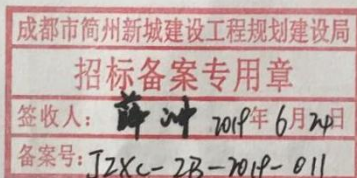 成都市简州新城建设工程规划建设局
招标备案专用章
签收人：薛冲 2019年6月24日
备案号：JZXC-ZB-2019-011